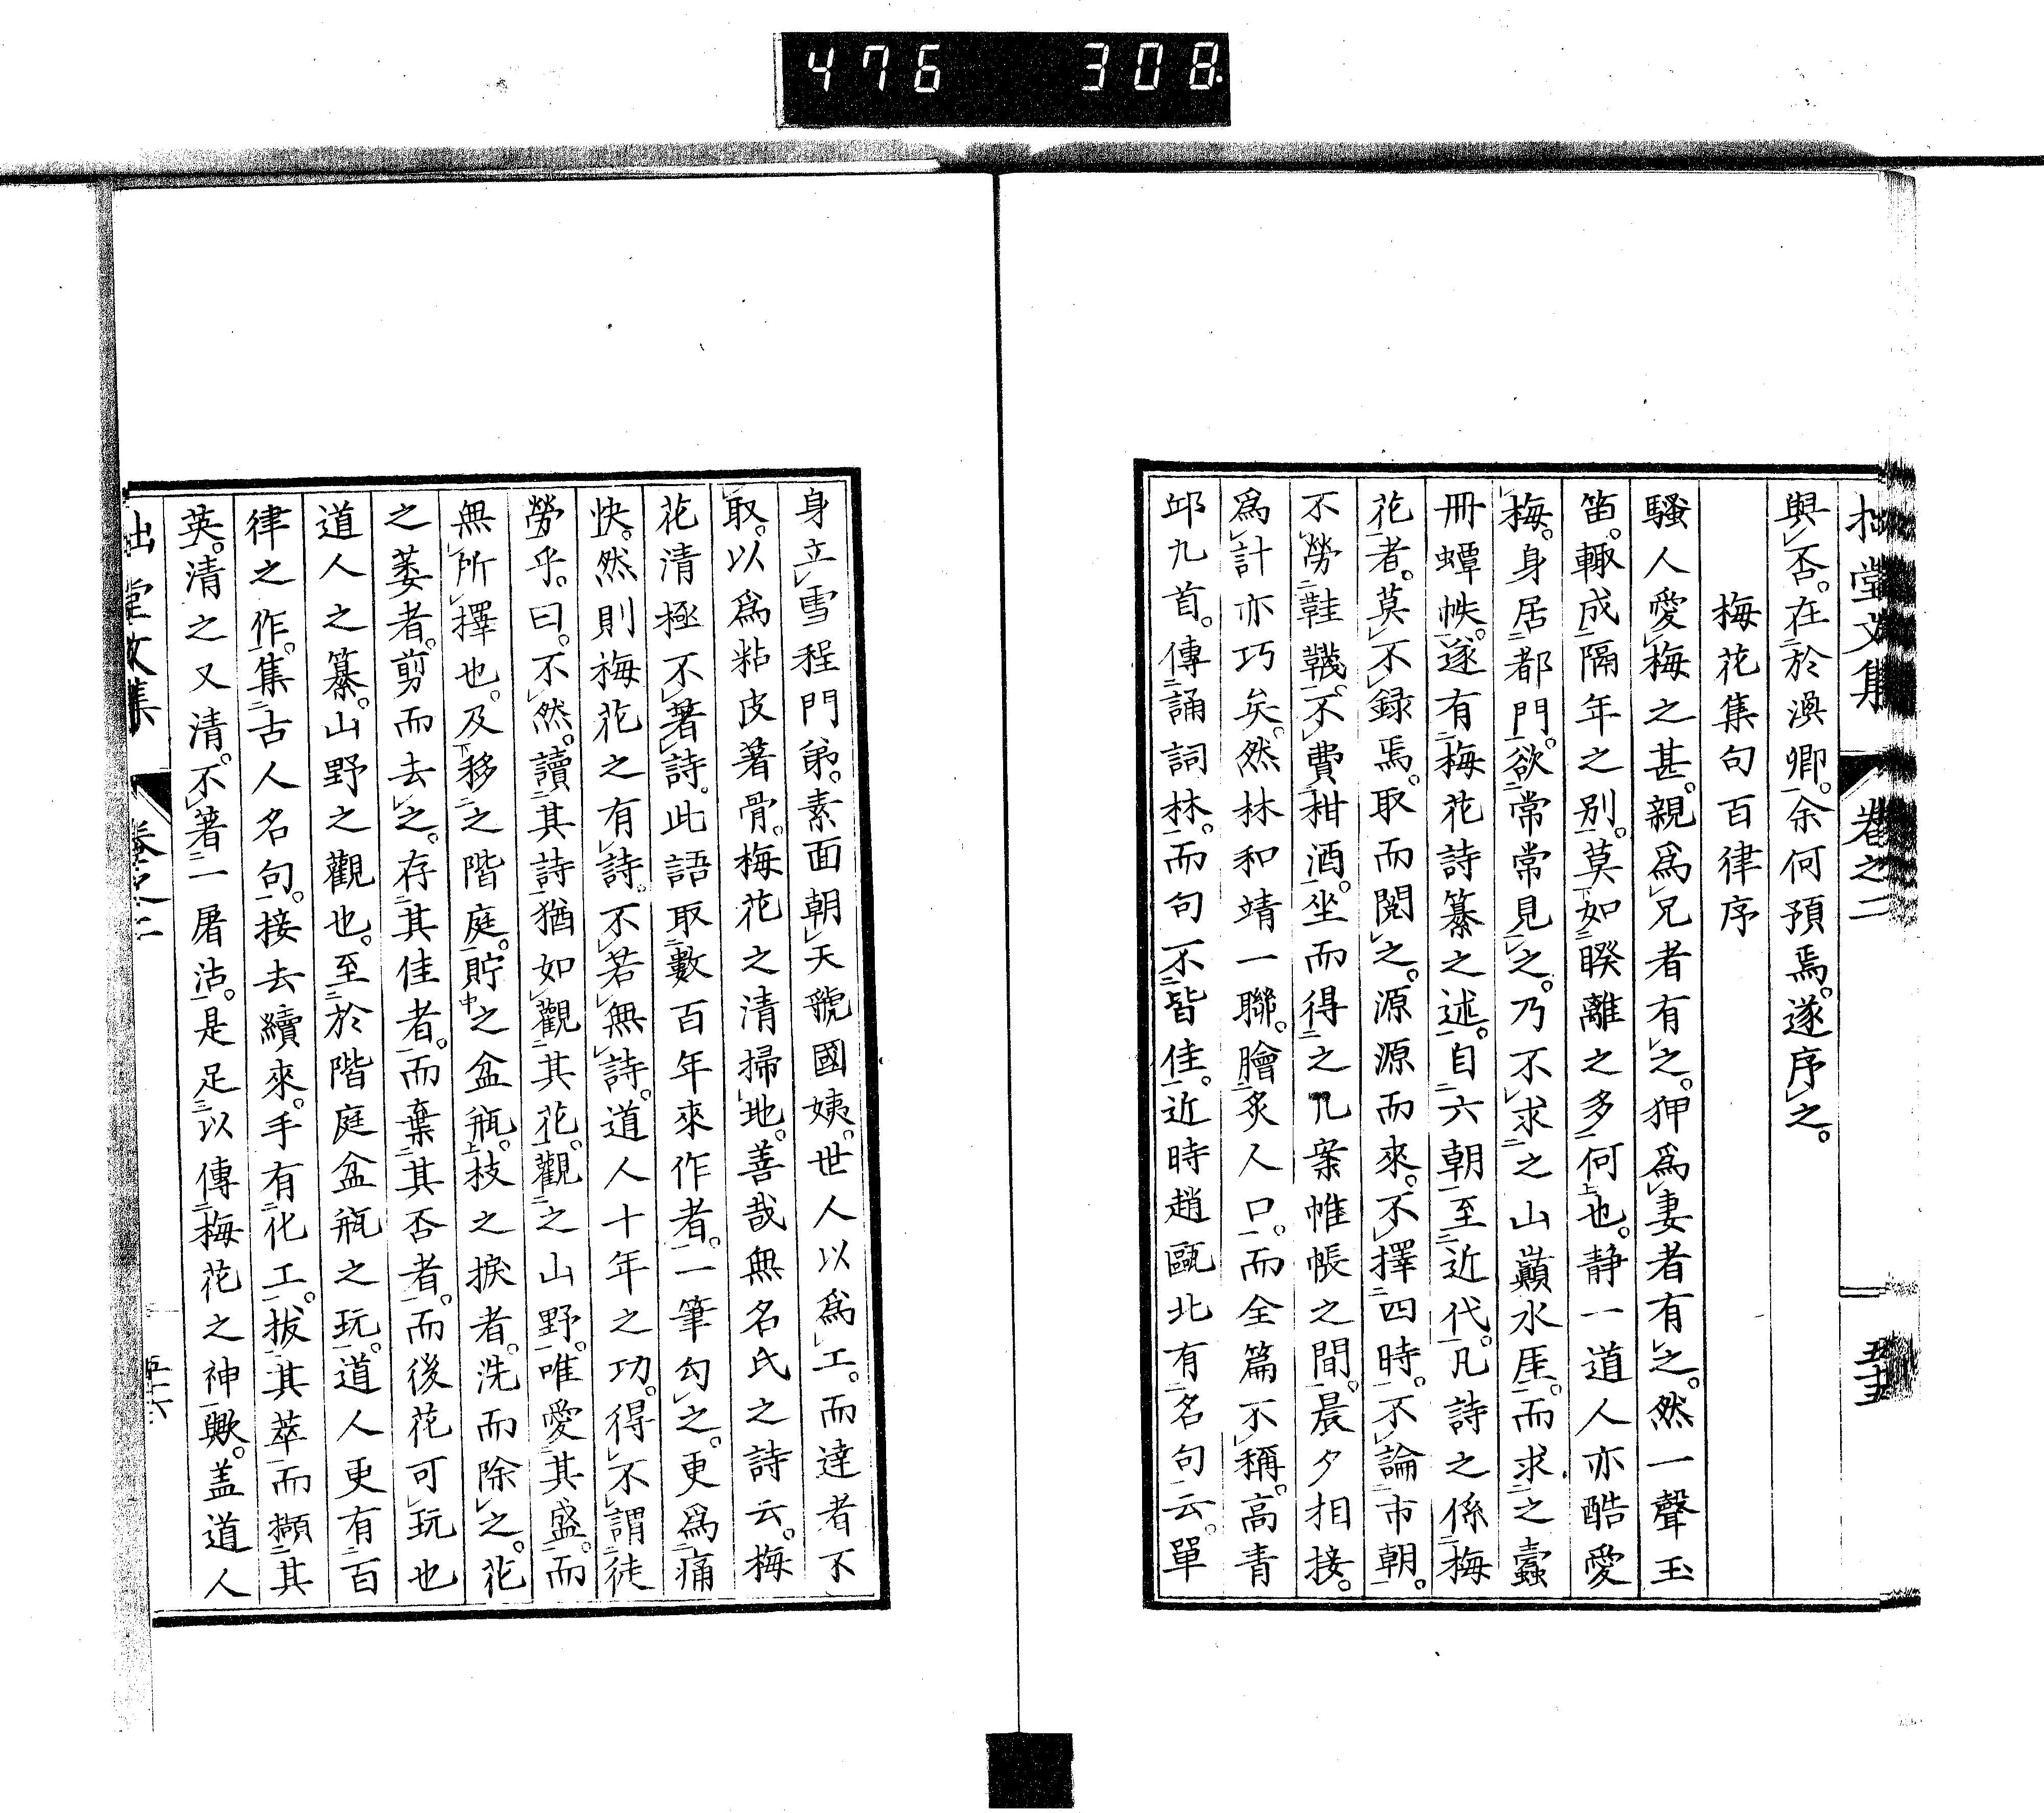 476 308
拙堂文集 卷之二 五十五
與否。在於渙卿。余何預焉。遂序之。
梅花集句百律序
騷人愛梅之甚。親爲兄者有之。狎爲妻者有之。然一聲玉
笛。輙成隔年之别。莫如睽離之多何也。静一道人亦酷愛
梅。身居都門。欲常常見之。乃不求之山巓水厓。而求之蠹
冊蟫帙。遂有梅花詩纂之述。自六朝至近代。凡詩之係梅
花者。莫不録焉。取而閲之。源源而來。不擇四時。不論市朝。
不勞鞋韈。不費柑酒。坐而得之几案帷帳之間。晨夕相接。
爲計亦巧矣。然林和靖一聯。膾炙人口。而全篇不稱。高青
邱九首。傳誦詞林。而句不皆佳。近時趙甌北有名句云。單
身立雪程門弟。素面朝天虢國姨。世人以爲工。而達者不
取。以爲粘皮著骨。梅花之清掃地。善哉無名氏之詩云。梅
花清極不著詩。此語取數百年來作者。一筆勾之。更爲痛
快。然則梅花之有詩。不若無詩。道人十年之功。得不謂徒
勞乎。曰。不然。讀其詩猶如觀其花。觀之山野。唯愛其盛。而
無所擇也。及移之階庭。貯之盆瓶。枝之捩者。洗而除之。花
之萎者。剪而去之。存其佳者。而棄其否者。而後花可玩也
道人之纂。山野之觀也。至於階庭盆瓶之玩。道人更有百
律之作。集古人名句。接去續來。手有化工。拔其萃而擷其
英。清之又清。不著一屠沽。是足以傳梅花之神歟。盖道人
拙堂文集 卷之二 五十六